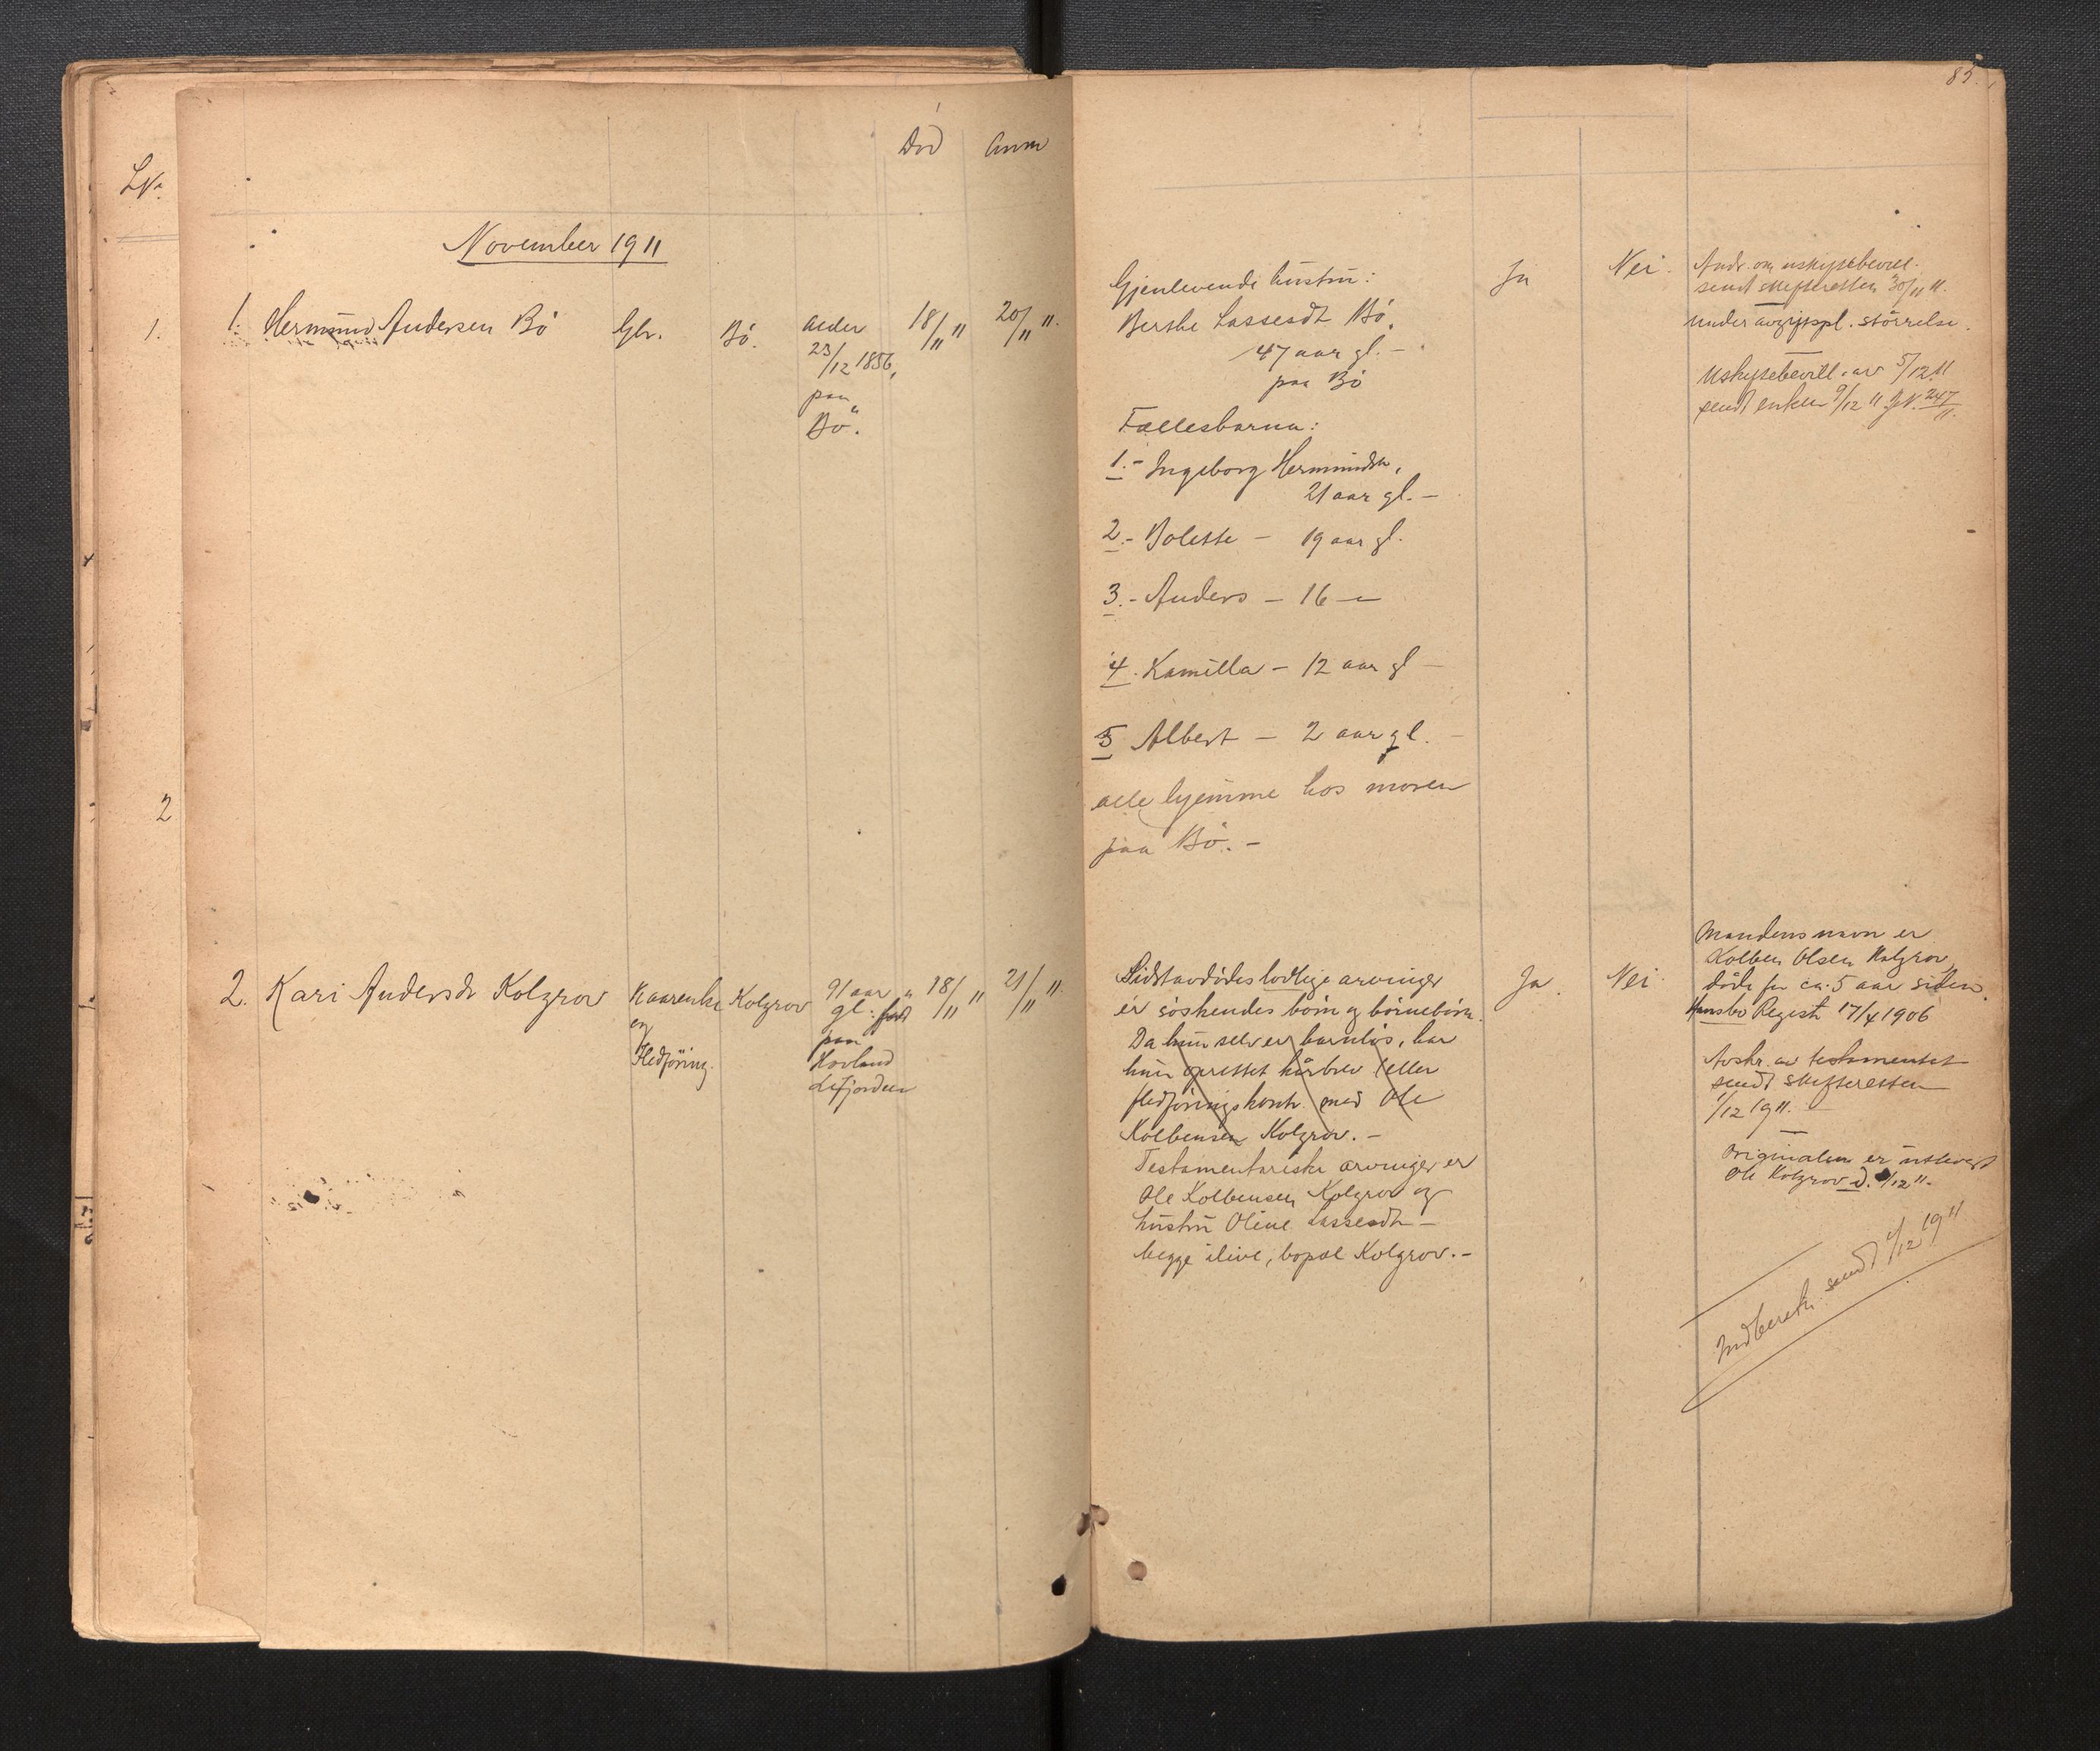 85.
Død Anm
LN.
November 1911
1. 1. Hermund Andersen Bö Gbr. Bö. alder 18/11 11 20/11 11.
23/12 1856,
paa
Bö.
2
2. Kari Andersdr Kolgrov Kaarenke Kolgrov 91 aar 18/11 11 21/11 11.
og gl. født
Fledföring. paa
Hovland
Gjenlevende hustru: Ja Nei.
Berthe Lassesdt Bö,
47 aar gl. –
paa Bö
Fællesbarna:
1.– Ingeborg Hermundsdr,
21 aar gl. –
2.– Bolette – 19 aar gl.
3.– Anders – 16 –
4. Kamilla – 12 aar gl –
5 Albert – 2 aar gl. –
alle hjemme hos moren
paa Bö. –
Andr. om uskiftebevill.
sendt skifteretten 30/11 11.
under avgiftspl. störrelse.
Uskiftebevill. av 5/12 11
sendt enken 9/12 11 JN. 247/11.
Sidstavdödes lovlige arvinger Ja. Nei
er söskendes börn og börnebörn.
Da hun selv er barnlös, har
hun oprettet kårbrev (eller
fledföringskontr. med Ole
Kolbensen Kolgrov. –
Testamentariske arvinger er
Ole Kolbensen Kolgrov og
hustru Oline Lassesdtr –
begge ilive, bopæl Kolgrov. –
Mandens navn er
Kolben Olsen Kolgrov,
döde for ca. 5 aar siden.
Regist 17/4 1906
Avskr. av testamentet
sendt skifteretten
1/12 1911. –
Originalen er utlevert
Ole Kolgrov d. /12 11.
Indberetn. sendt 1/12 1911